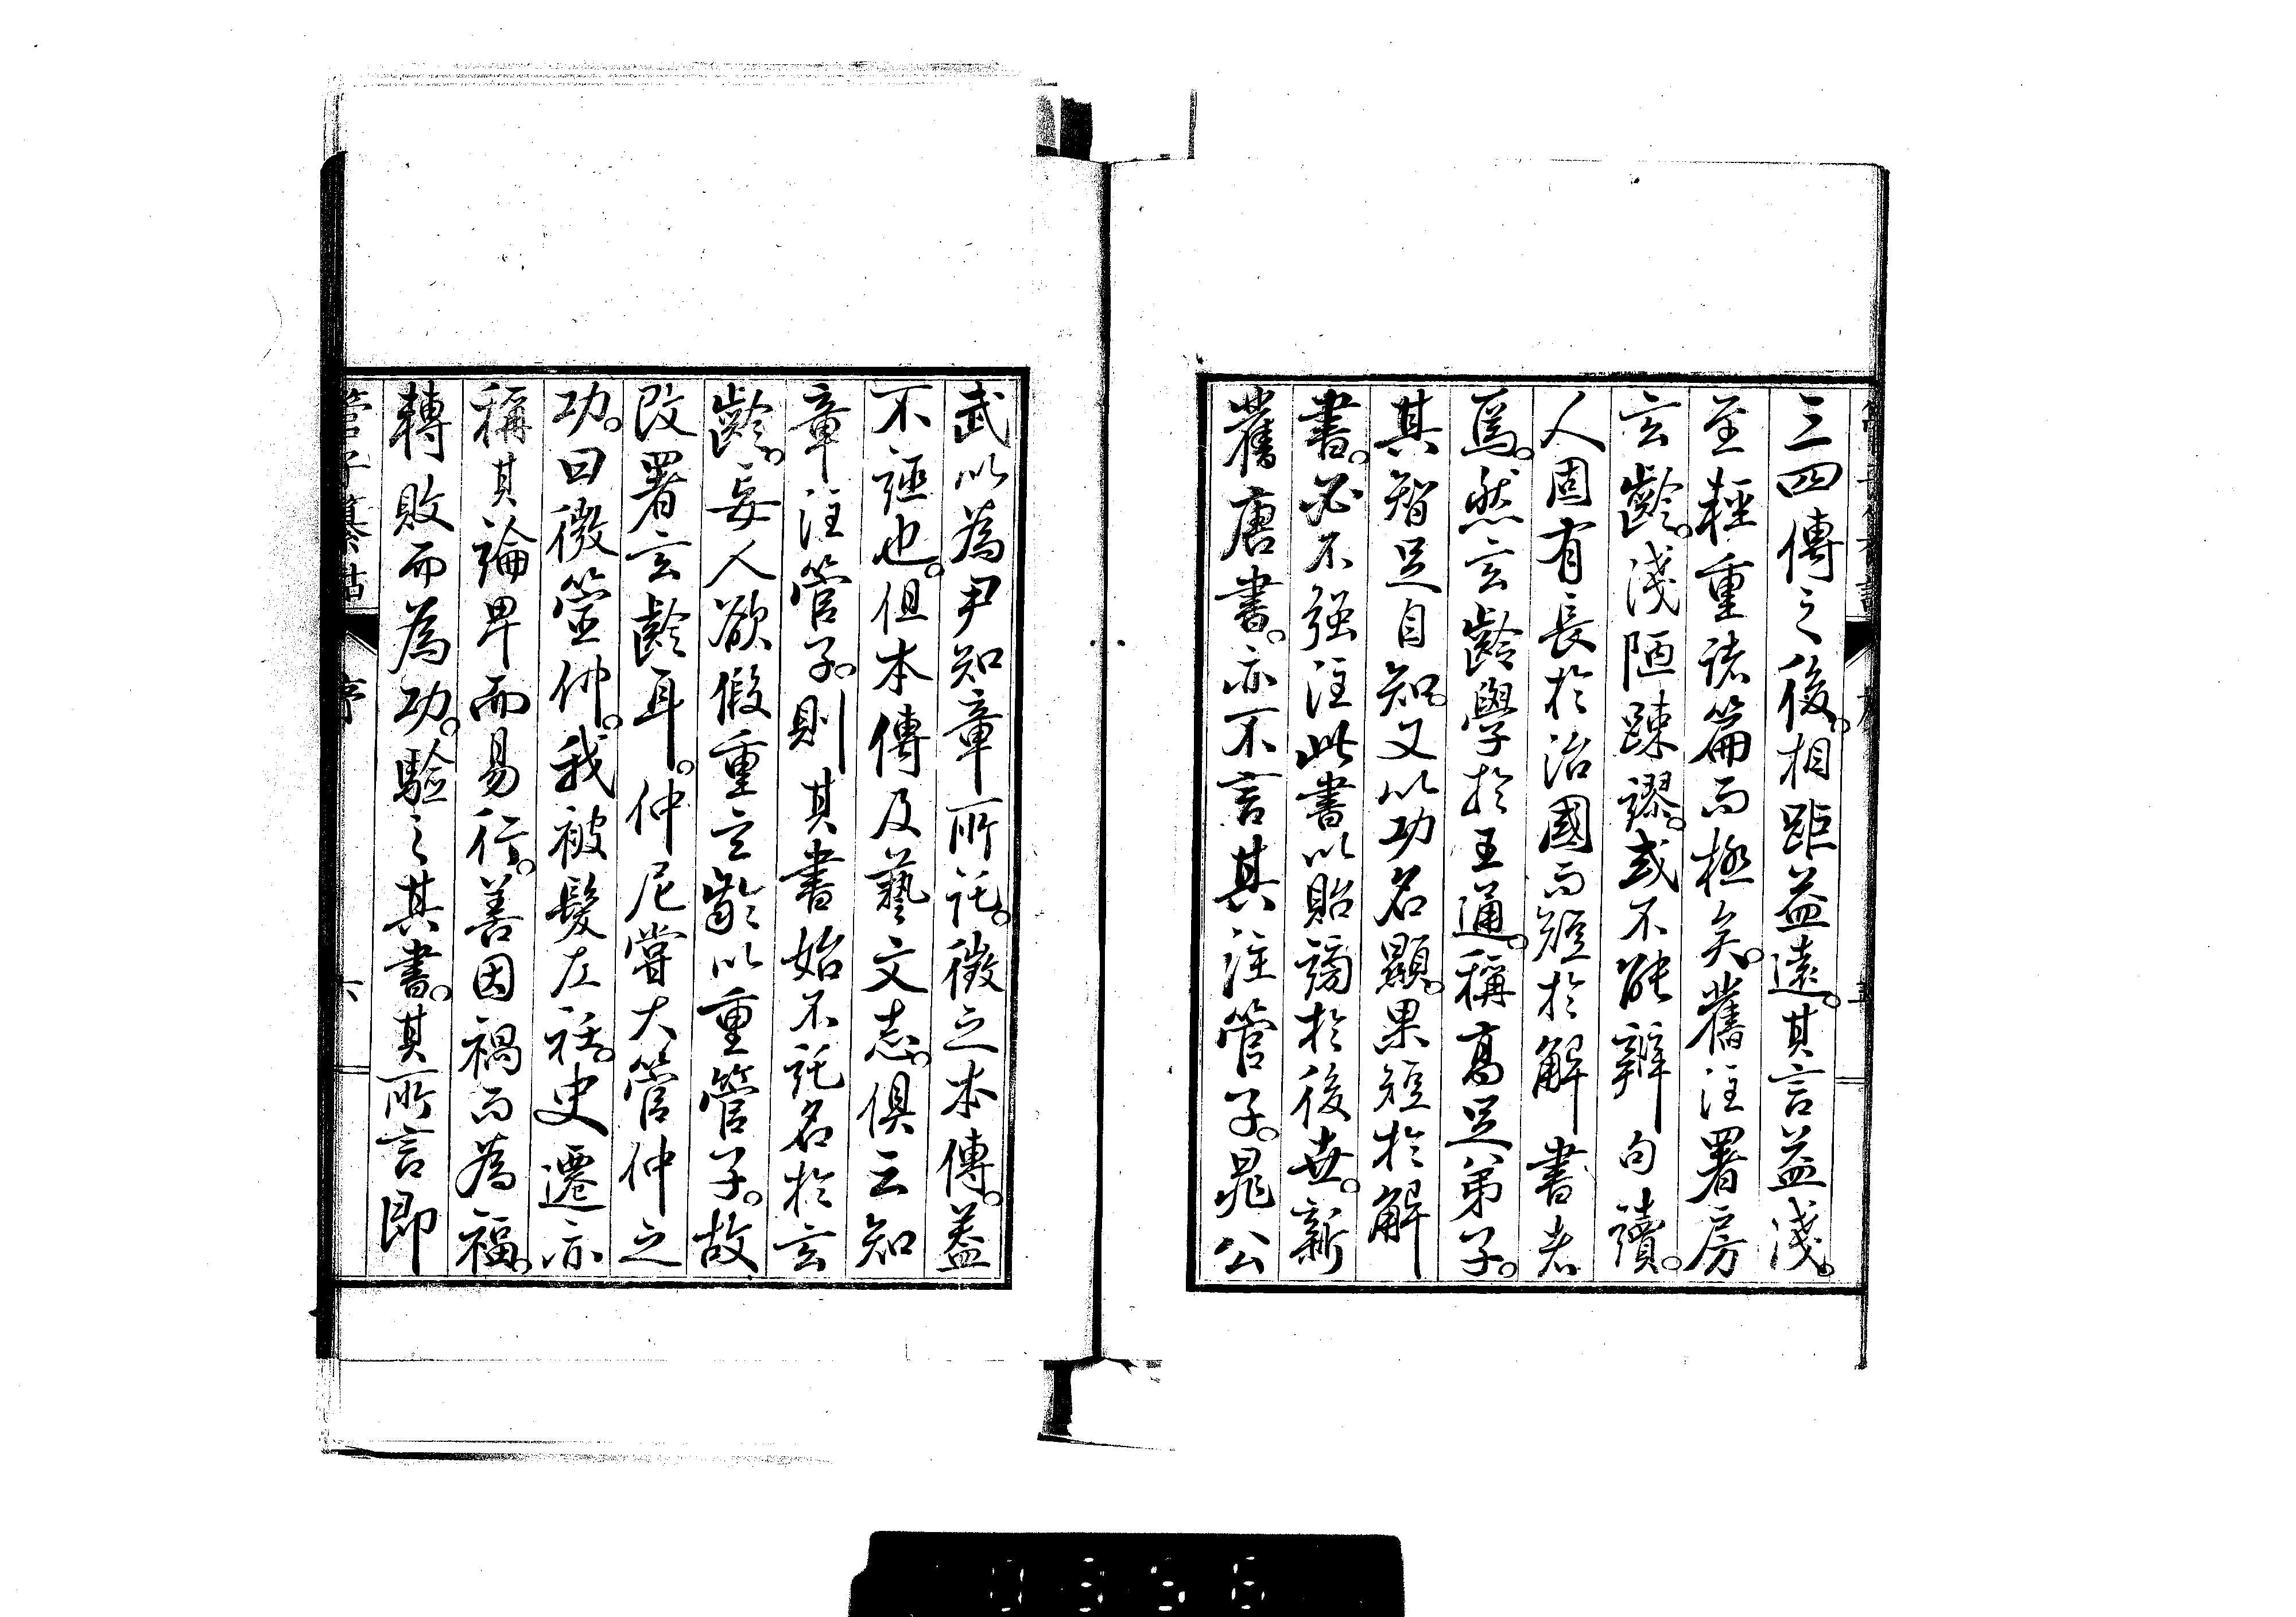 三四傳之後。相距益遠。其言益淺。
至輕重諸篇而極矣。舊注署房
玄齡。淺陋踈謬。或不能辨句讀。
人固有長於治國而短於解書者
焉。然玄齡學於王通。稱高足弟子。
其智足自知。又以功名顯。果短於解
書。必不强注此書以貽謗於後世。新
舊唐書。亦不言其注管子。晁公
武以為尹知章所託。徵之本傳。蓋
不誣也。但本傳及藝文志。俱云知
章注管子。則其書始不託名於玄
齡。妄人欲假重玄齡以重管子。故
改署玄齡耳。仲尼嘗大管仲之
功。曰微管仲。我被髮左衽。史遷亦
稱其論卑而易行。善因禍而為福。
轉敗而為功。驗之其書。其所言即
管子纂詁 序 六